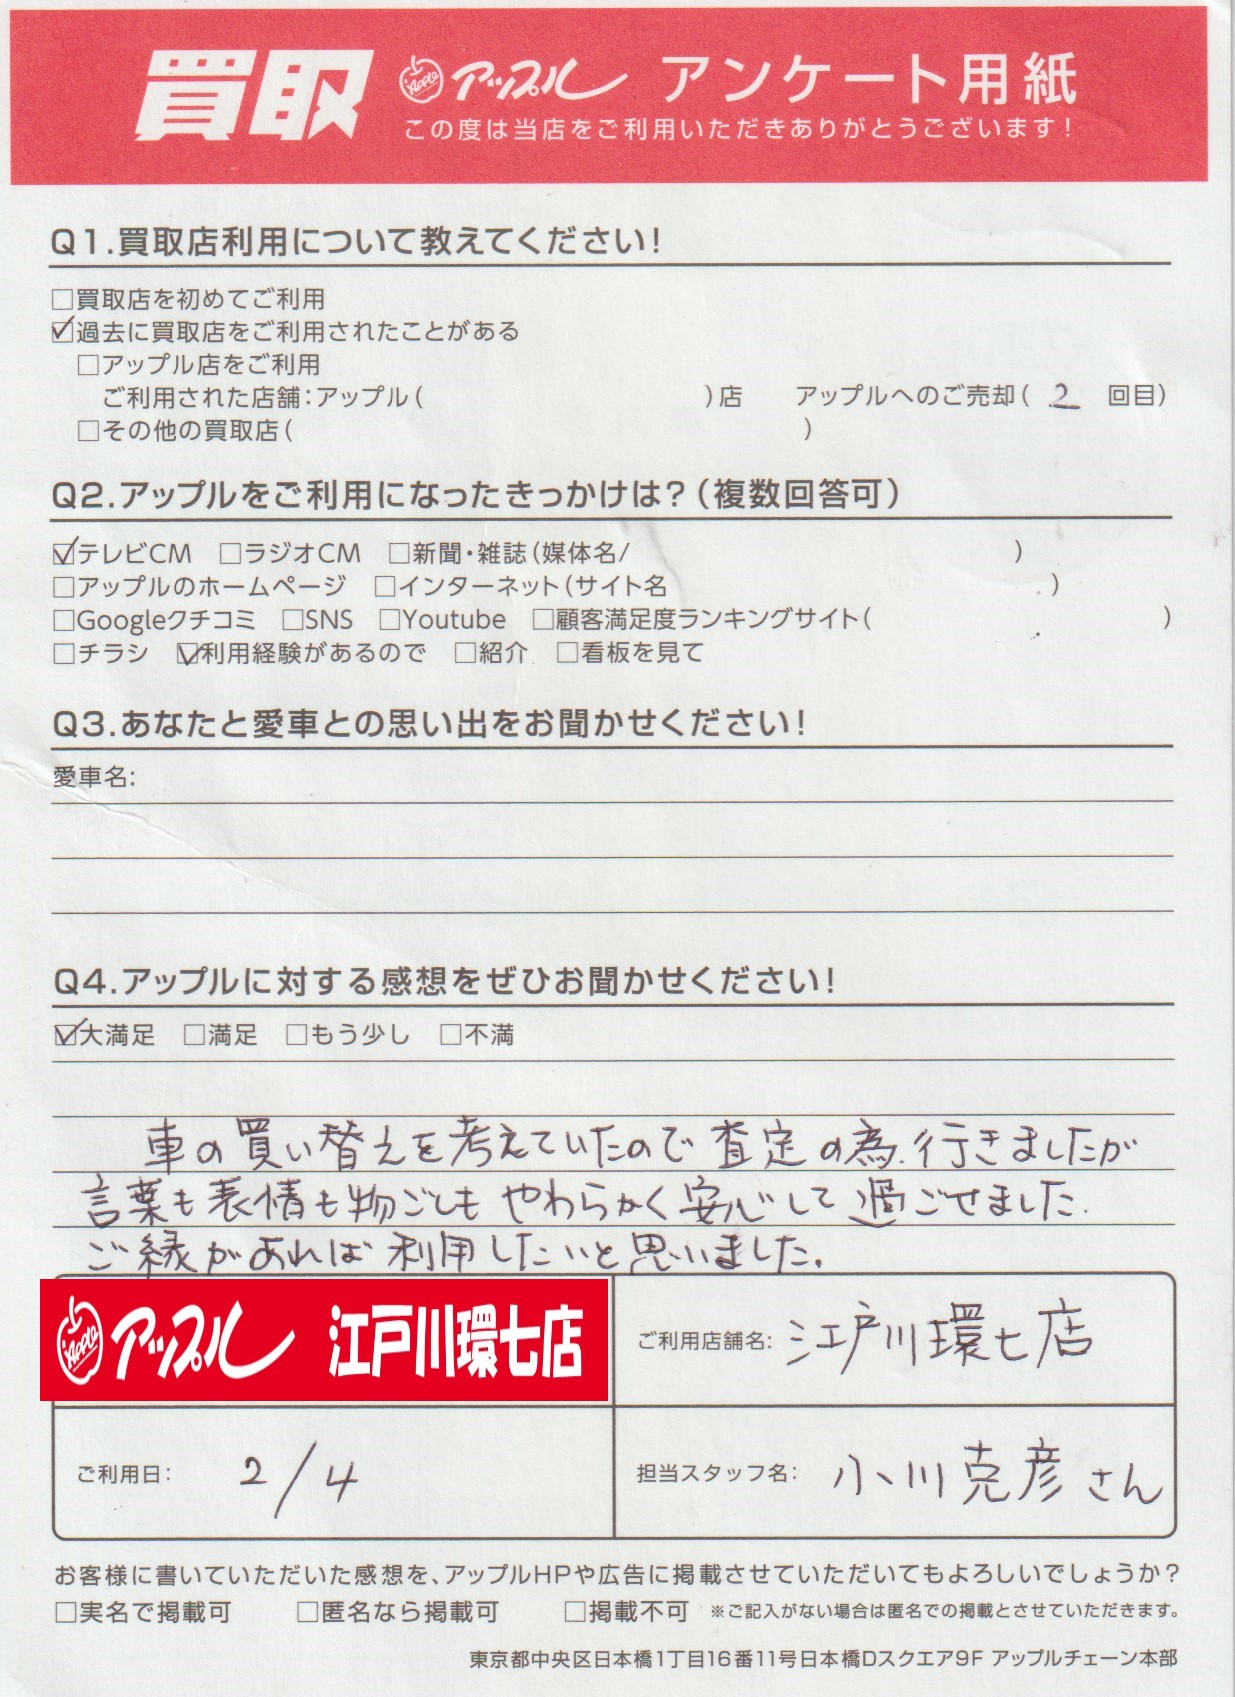 買取 Apple アップル アンケート用紙
この度は当店をご利用いただきありがとうございます!
Q1.買取店利用について教えてください!
□買取店を初めてご利用
☑過去に買取店をご利用されたことがある
□アップル店をご利用
ご利用された店舗:アップル( )店 アップルへのご売却( 2 回目)
□その他の買取店( )
Q2.アップルをご利用になったきっかけは?(複数回答可)
☑テレビCM □ラジオCM □新聞・雑誌(媒体名/ )
□アップルのホームページ □インターネット(サイト名 )
□Googleクチコミ □SNS □Youtube □顧客満足度ランキングサイト( )
□チラシ ☑利用経験があるので □紹介 □看板を見て
Q3.あなたと愛車との思い出をお聞かせください!
愛車名:
Q4.アップルに対する感想をぜひお聞かせください!
☑大満足 □満足 □もう少し □不満
車の買い替えを考えていたので査定の為.行きましたが
言葉も表情も物ごしもやわらかく安心して過ごせました.
ご縁があれば利用したいと思いました。
Apple アップル 江戸川環七店
ご利用店舗名: 江戸川環七店
ご利用日: 2/4
担当スタッフ名: 小川克彦さん
お客様に書いていただいた感想を、アップルHPや広告に掲載させていただいてもよろしいでしょうか?
□実名で掲載可 □匿名なら掲載可 □掲載不可 ※ご記入がない場合は匿名での掲載とさせていただきます。
東京都中央区日本橋1丁目16番11号日本橋Dスクエア9F アップルチェーン本部